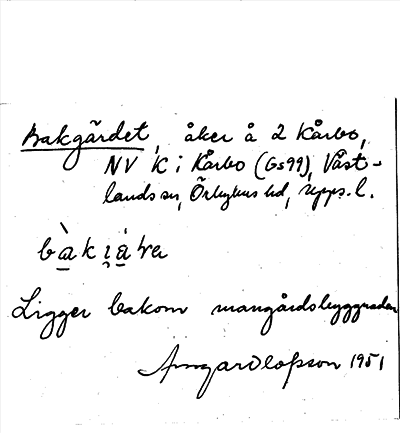 Bakgärdet, åker å 2 Kårbo,
NV K i Kårbo (Gs99), Våst-
lands sn, Örbyhus hd, Upps. l.
Ligger bakom mangårdsbyggnaden
Olofsson 1951